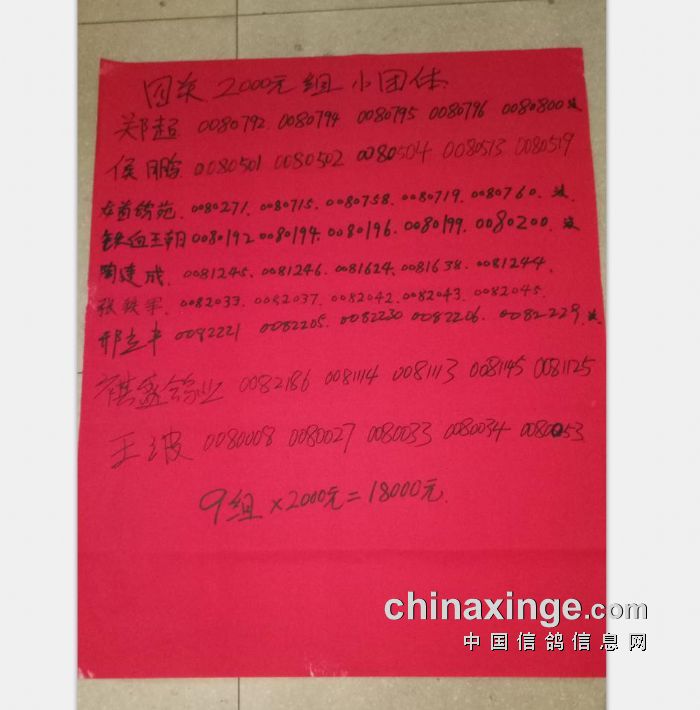 四关 2000元组 小团体
郑超 0080792 0080794 0080795 0080796 0080800
侯鹏 0080501 0080502 0080504 0080513 0080519
鸽苑. 0080271. 0080715. 0080758. 0080719. 0080760.
铁血王朝 0080192 0080194. 0080196. 0080199. 0080200.
陶建成. 0081245. 0081246. 0081624. 0081638. 0081244.
张铁军. 0082033. 0082037. 0082042. 0082043. 0082045.
邢立丰 0082221 0082205 0082230 0082206. 0082229.
祺盛鸽业 0082186 0081114 0081113 0081145 0081125
王波 0080008 0080027 0080033 0080034 0080053
9组×2000元=18000元.
chinaxinge.com
中国信鸽信息网